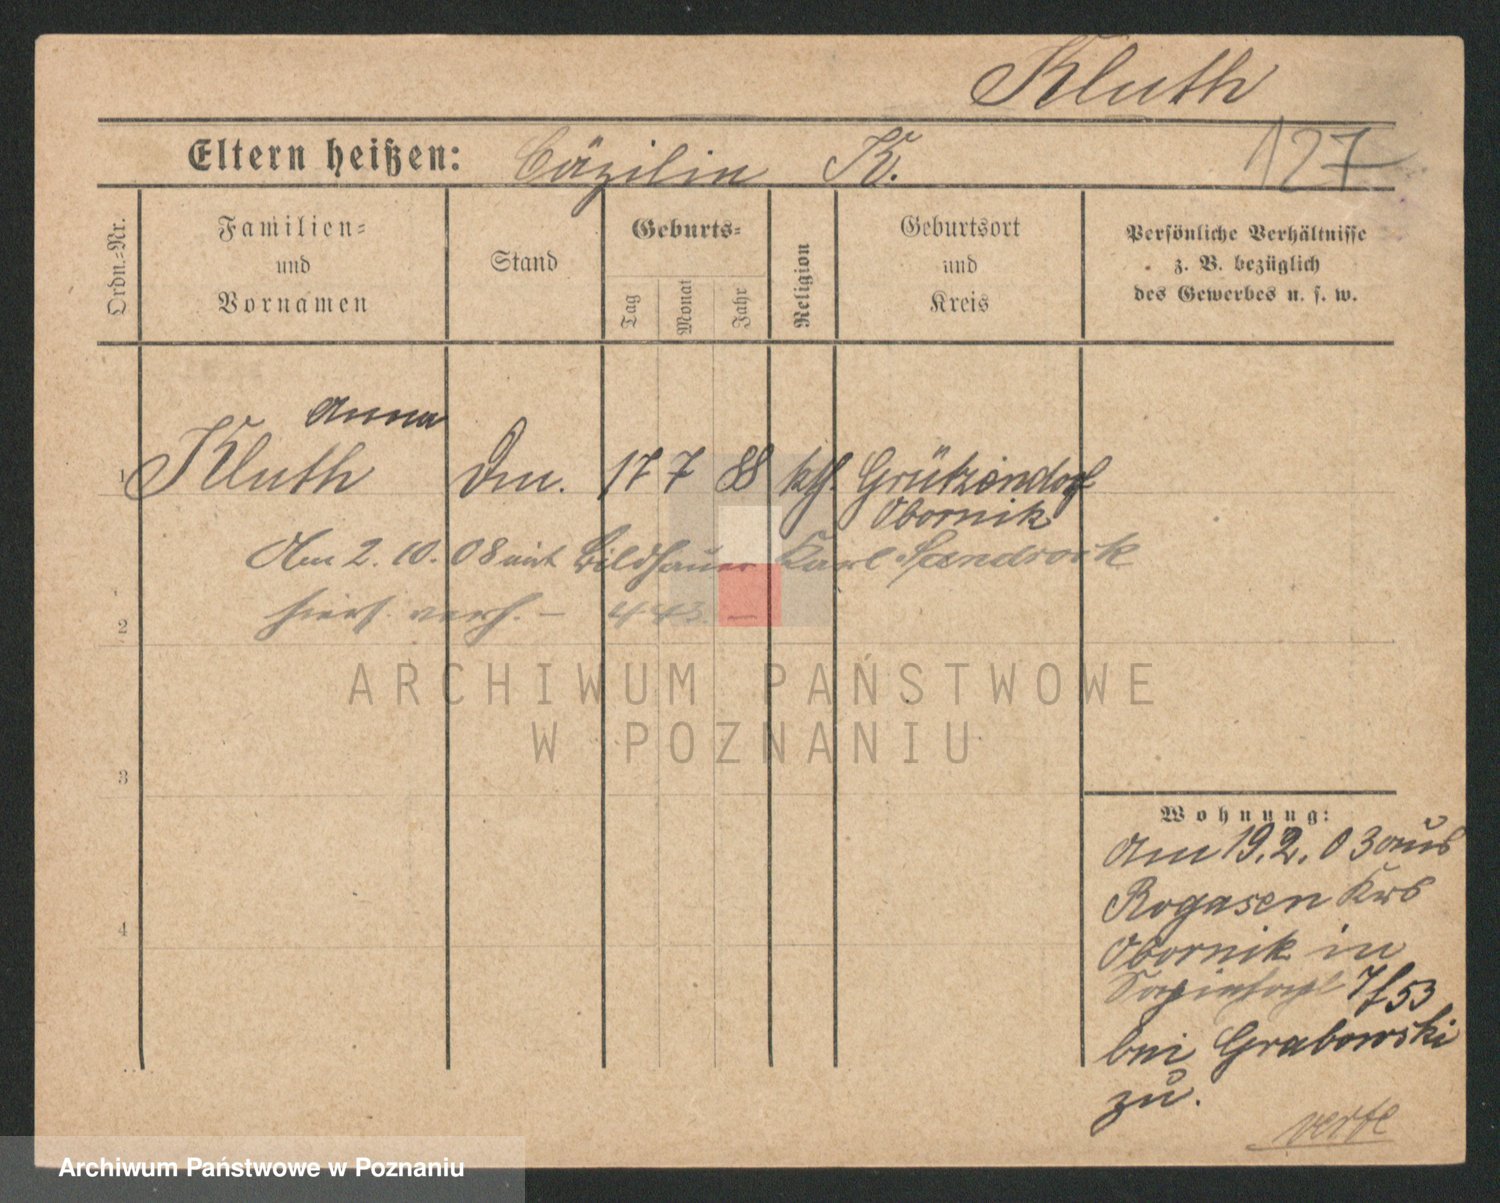 Kluth
127
Eltern heißen: Cäzilie K.
Ordn.-Nr.
Familien-
und
Vornamen
Stand
Geburts-
Tag
Monat
Jahr
Religion
Geburtsort
und
Kreis
Persönliche Verhältnisse
z. B. bezüglich
des Gewerbes u. s. w.
Anna
1 Kluth 17 7 88 kth. Grützendorf
Obornik
Am 2. 10. 08 mit Bildhauer Karl Sandrock
2 hiers. verh. – 443. –
3
4
Wohnung:
Am 19.2.03 aus
Rogasen Krs
Obornik in
7/53
bei Grabowski
zu.
verte
ARCHIWUM PAŃSTWOWE
W POZNANIU
Archiwum Państwowe w Poznaniu